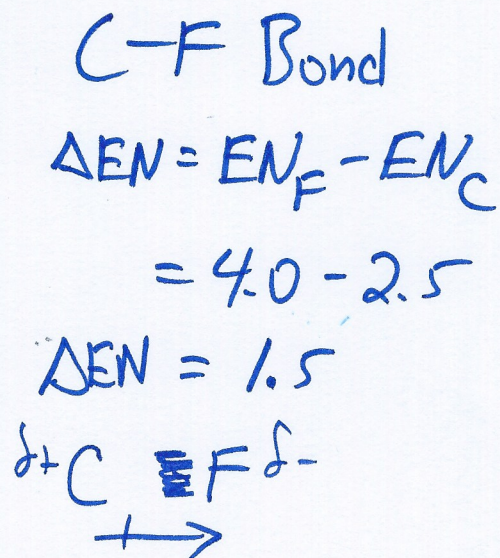 C-F Bond
ΔEN = EN_F - EN_C
= 4.0 - 2.5
ΔEN = 1.5
δ+ C F δ-